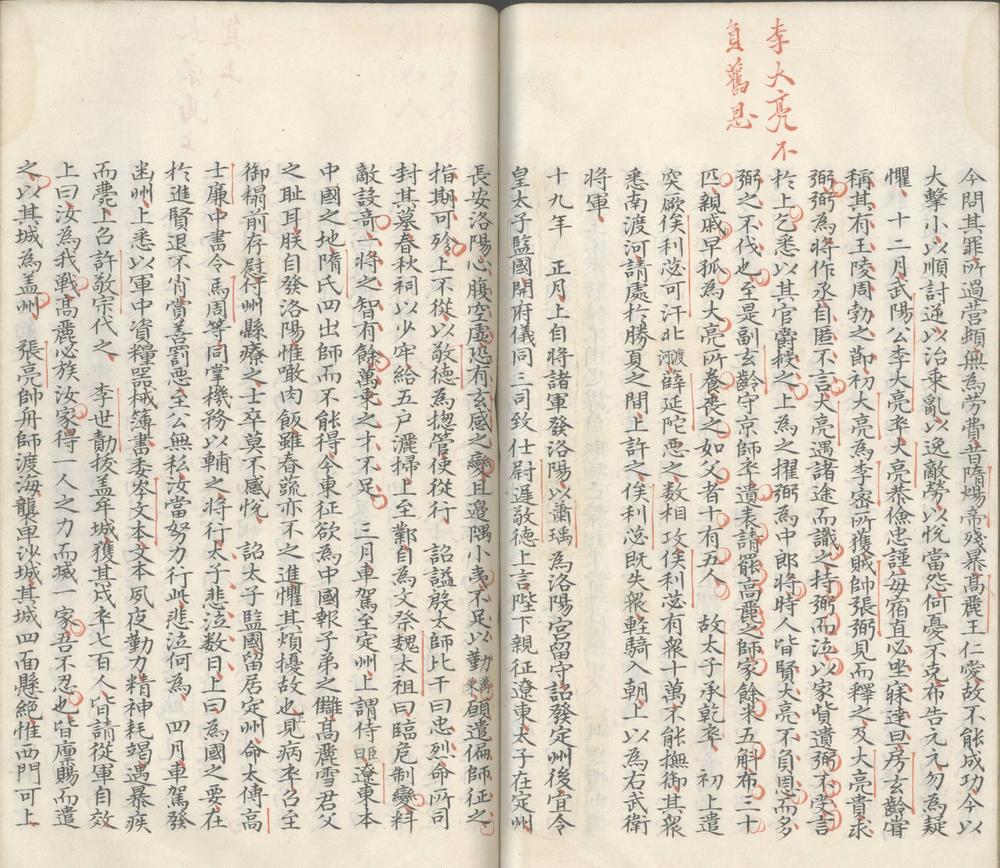 李大亮不
負舊恩
今問其罪所過營頓無為勞費昔隋煬帝殘暴高麗王仁愛故不能成功今以
大擊小以順討逆以治乘亂以逸敵勞以悅當怨何憂不克布告元元勿為疑
懼 十二月武陽公李大亮卒大亮恭儉忠謹每宿直必坐寐達旦房玄齡嘗
稱其有王陵周勃之節初大亮為李密所獲賊帥張弼見而釋之及大亮貴求
弼弼為將作丞自匿不言大亮遇諸途而識之持弼而泣以家貲遺弼不受言
於上乞悉以其官爵授之上為之擢弼為中郎將時人皆賢大亮不負恩而多
弼之不伐也至是副玄齡守京師卒遺表請罷高麗之師家餘米五斛布三十
匹親戚早孤為大亮所養喪之如父者十有五人 故太子承乾卒 初上遣
突厥俟利苾可汗北渡河薛延陀惡之数相攻俟利苾有衆十萬不能撫御其衆
悉南渡河請處於勝夏之間上許之俟利苾既失衆輕騎入朝上以為右武衛
將軍
十九年 正月上自將諸軍發洛陽以蕭瑀為洛陽宮留守詔發定州後宜令
皇太子監國開府儀同三司致仕尉遲敬德上言陛下親征遼東太子在定州
長安洛陽心腹空虛恐有玄感之變且邊隅小夷不足以勤萬乘願遣偏師征之
指期可殄上不從以敬德為揔管使從行 詔謚殷太師比干曰忠烈命所司
封其墓春秋祠以少牢給五戶灑掃上至鄴自為文祭魏太祖曰臨危制變料
敵設奇一將之智有餘萬乘之才不足 三月車駕至定州上謂侍臣遼東本
中國之地隋氏四出師而不能得今東征欲為中國報子弟之讎高麗雪君父
之耻耳朕自發洛陽惟噉肉飯雖春蔬亦不之進懼其煩擾故也上見病卒召至
御榻前存慰付州縣療之士卒莫不感悅 詔太子監國留居定州命太傅高
士廉中書令馬周等同掌機務以輔之將行太子悲泣数日上曰為國之要在
於進賢退不肖賞善罰惡至公無私汝當努力行此悲泣何為 四月車駕發
幽州上悉以軍中資糧器械簿書委岑文本文本夙夜勤力精神耗竭遇暴疾
而薨上召許敬宗代之 李世勣拔盖牟城獲其戍卒七百人皆請從軍自效
上曰汝為我戰高麗必族汝家得一人之力而滅一家吾不忍也皆廪賜而遣
之以其城為盖州 張亮帥舟師渡海襲卑沙城其城四面懸絕惟西門可上